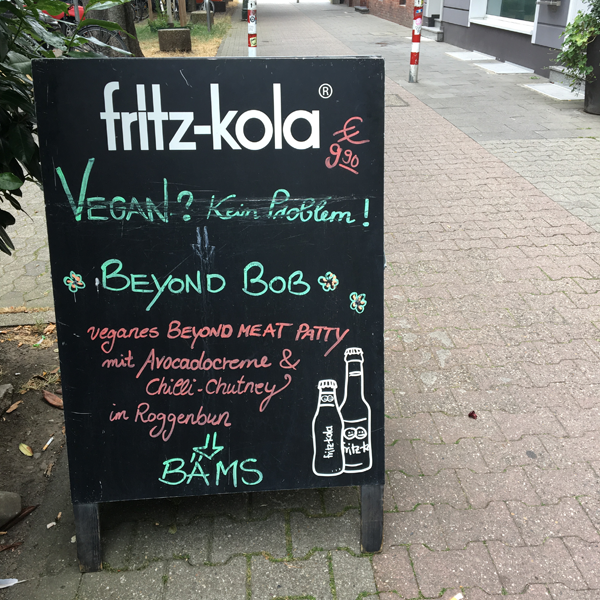 fritz-kola®
€ 9,90
VEGAN? Kein Problem!
BEYOND BOB
veganes BEYOND MEAT PATTY
mit Avocadocreme &
Chilli-Chutney
im Roggenbun
BÄMS
fritz-kola
fritz-k